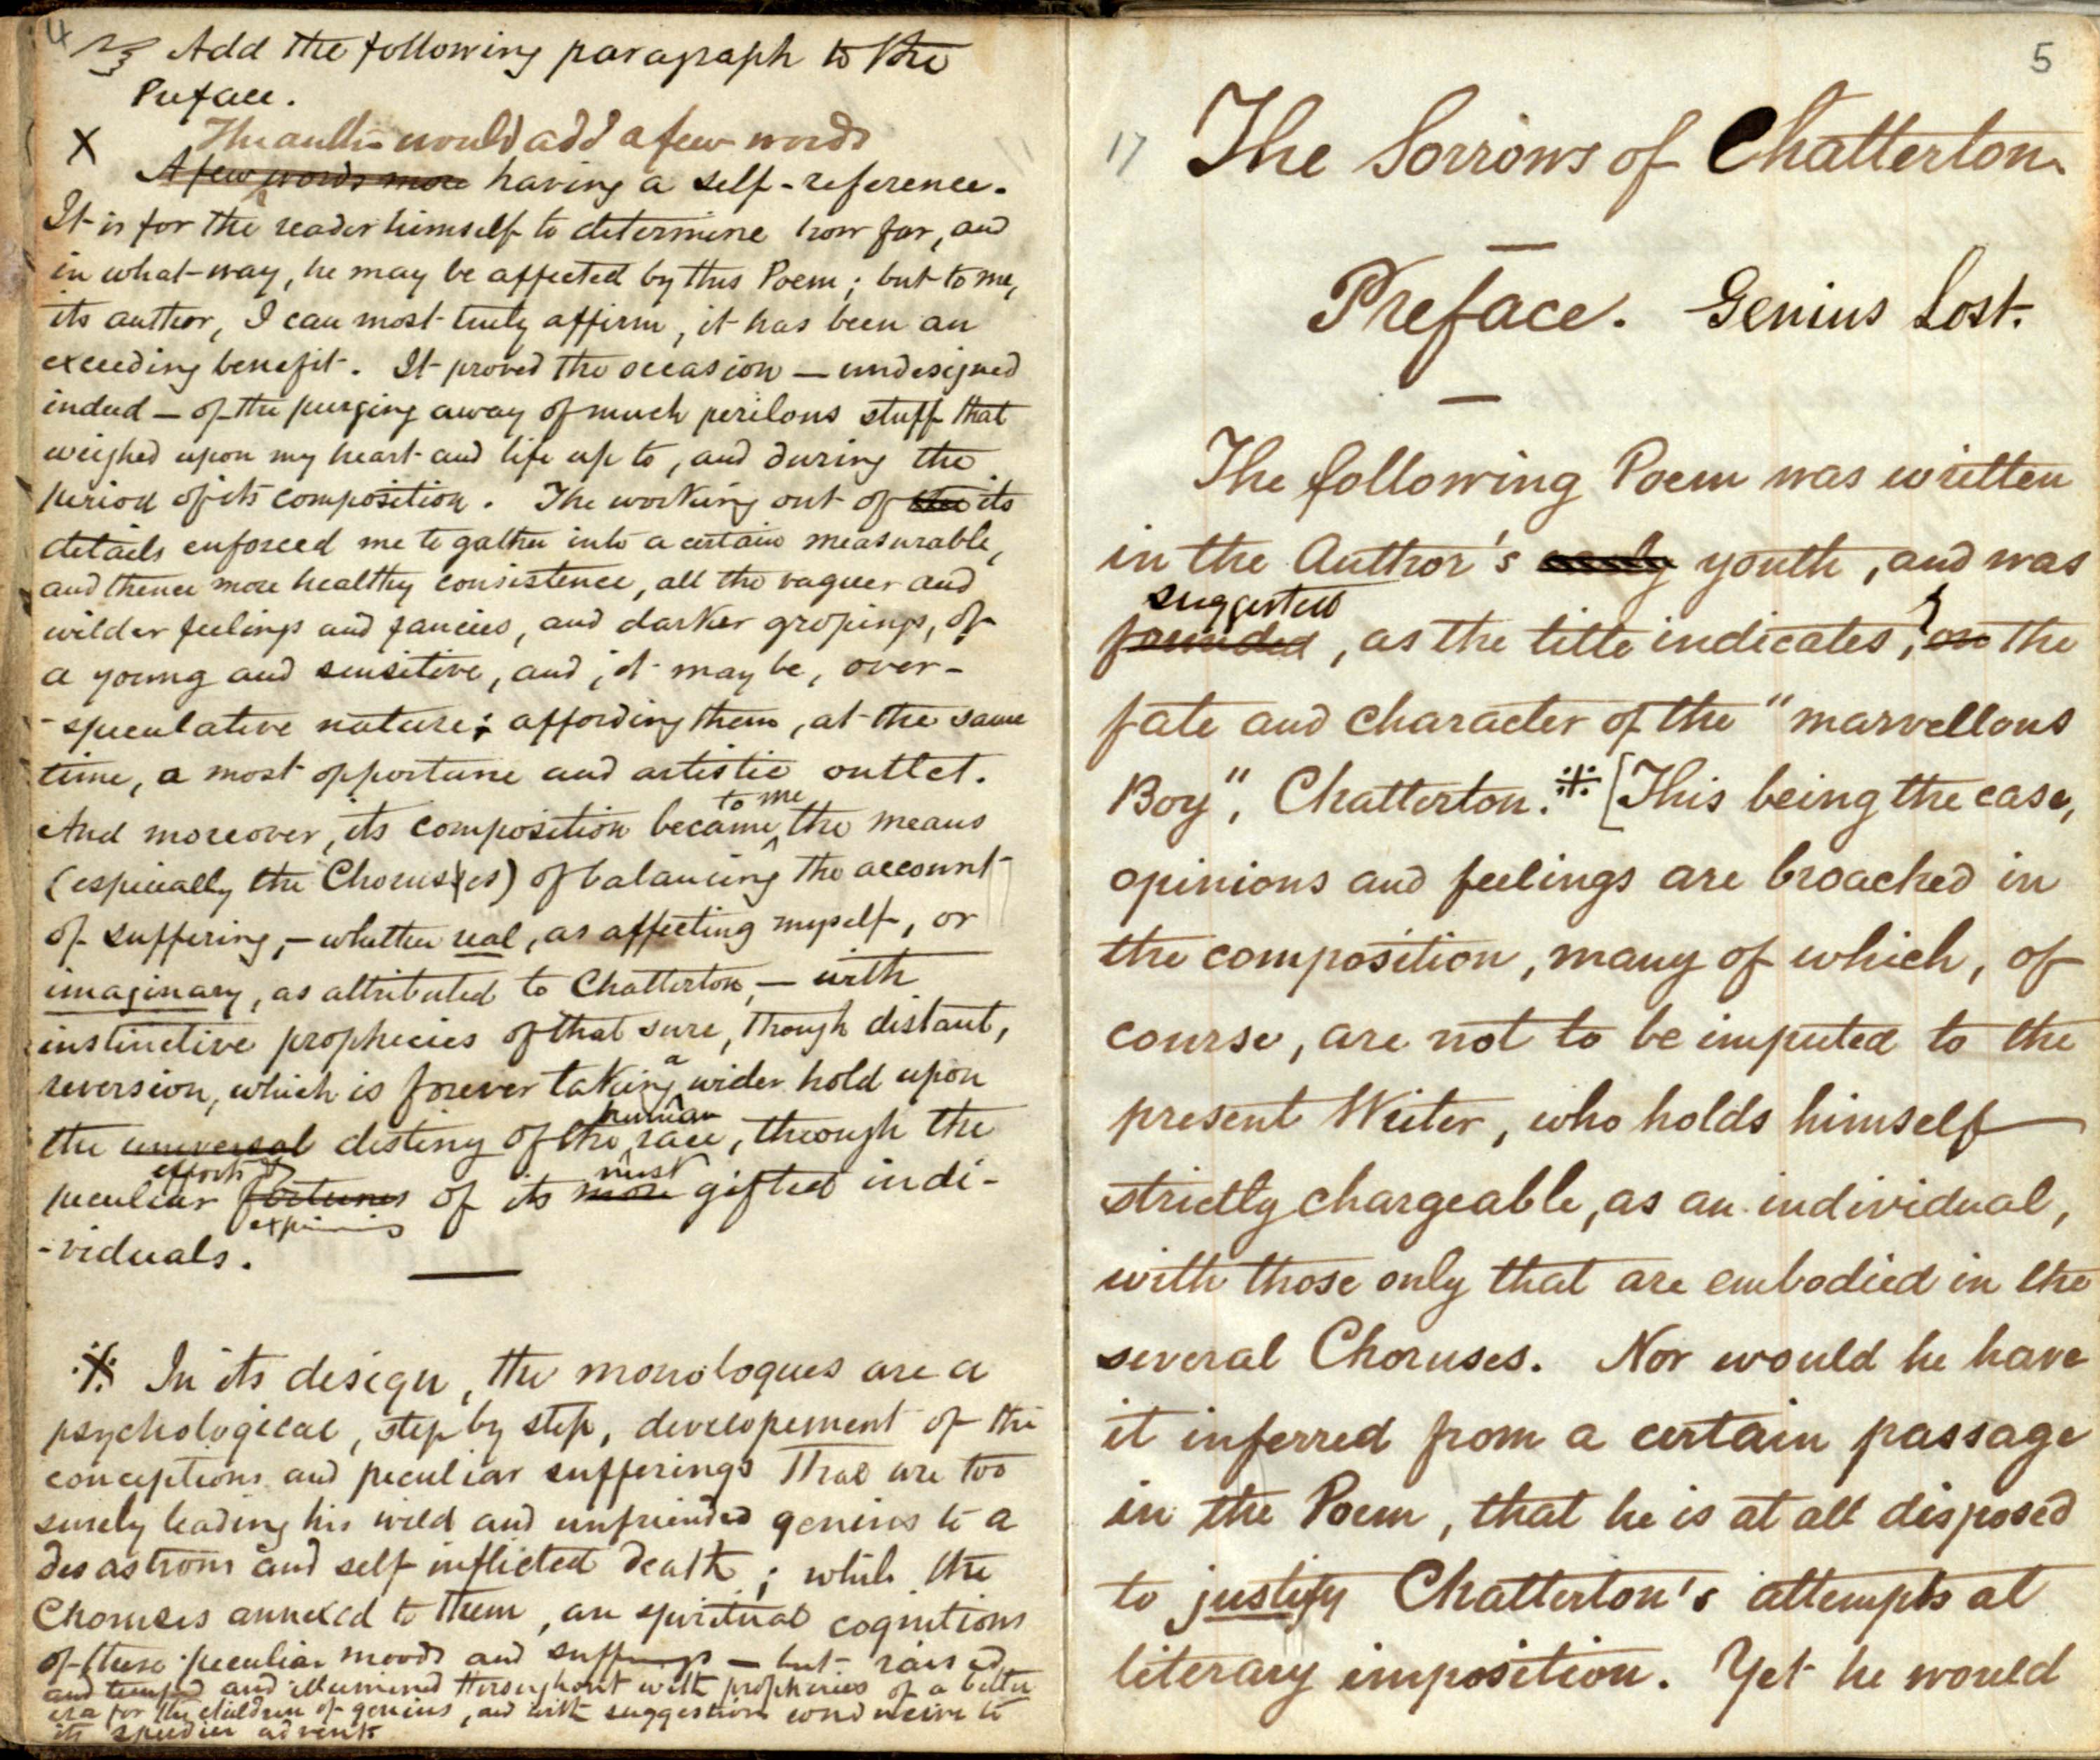 4
Add the following paragraph to the
Preface.
X The author would add a few words
A few words more having a self-reference.
It is for the reader himself to determine how far, and
in what way, he may be affected by this Poem; but to me,
its author, I can most truly affirm, it has been an
exceeding benefit. It proved the occasion — undesigned
indeed — of the purging away of much perilous stuff that
weighed upon my heart and life up to, and during the
period of its composition. The working out of the its
details enforced me to gather into a certain measurable,
and thence more healthy consistence, all the vaguer and
wilder feelings and fancies, and darker gropings, of
a young and sensitive, and, it may be, over-
-speculative nature; affording them, at the same
time, a most opportune and artistic outlet.
to me
And moreover, its composition became the means
(especially the Choruses) of balancing the account
of suffering, — whether real, as affecting myself, or
imaginary, as attributed to Chatterton, — with
instinctive prophecies of that sure, though distant,
a
reversion, which is forever taking wider hold upon
human
the universal destiny of the race, through the
efforts & most
peculiar fortunes of its more gifted indi-
-viduals.
※ In its design, the monologues are a
psychological, step by step, developement of the
conceptions and peculiar sufferings that are too
surely leading his wild and unfriended genius to a
desastrous and self inflicted death; while the
Choruses annexed to them, are spiritual cognitions
of these peculiar moods and sufferings — but raised
and and illumined throughout with prophecies of a better
era for the children of genius, and with suggestions conducive to
its speedier advent.
5
17 The Sorrows of Chatterton.
Preface. Genius Lost.
The following Poem was written
in the Author's early youth, and was
suggested
founded, as the title indicates, on the
fate and character of the "marvellous
Boy", Chatterton. ※ [This being the case,
opinions and feelings are broached in
the composition, many of which, of
course, are not to be imputed to the
present Writer, who holds himself
strictly chargeable, as an individual,
with those only that are embodied in the
several Choruses. Nor would he have
it inferred from a certain passage
in the Poem, that he is at all disposed
to justify Chatterton's attempts at
literary imposition. Yet he would